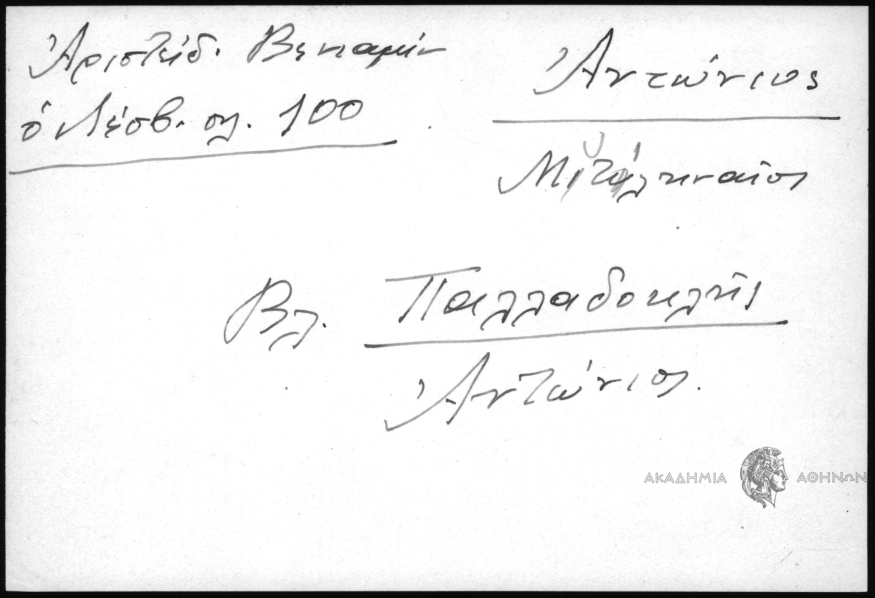 Ἀριστείδ. Βενιαμίν
ὁ Λέσβ. σλ. 100
Ἀντώνιος
Μυτιληναῖος
Βλ. Παλλαδοκλῆς
Ἀντώνιος.
ΑΚΑΔΗΜΙΑ ΑΘΗΝΩΝ